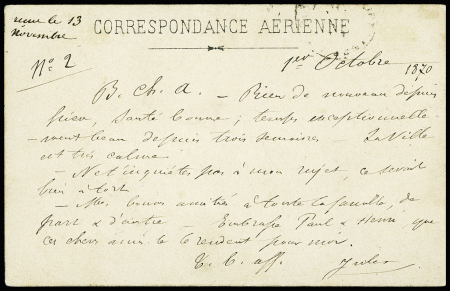 reçue le 13
novembre
CORRESPONDANCE AÉRIENNE
No 2
1er Octobre 1870
B. ch. a. — Rien de nouveau depuis
hier, Santé bonne; temps exceptionnelle-
-ment beau depuis trois semaines La Ville
est très calme.
— Ne t'inquiètes pas à mon sujet, ce serait
bien à tort
— Mes bonnes amitiés à toute la famille, de
part & d'autre — Embrasse Paul & Henri que
ces chers amis te le rendent pour moi.
T. b. aff. Jules